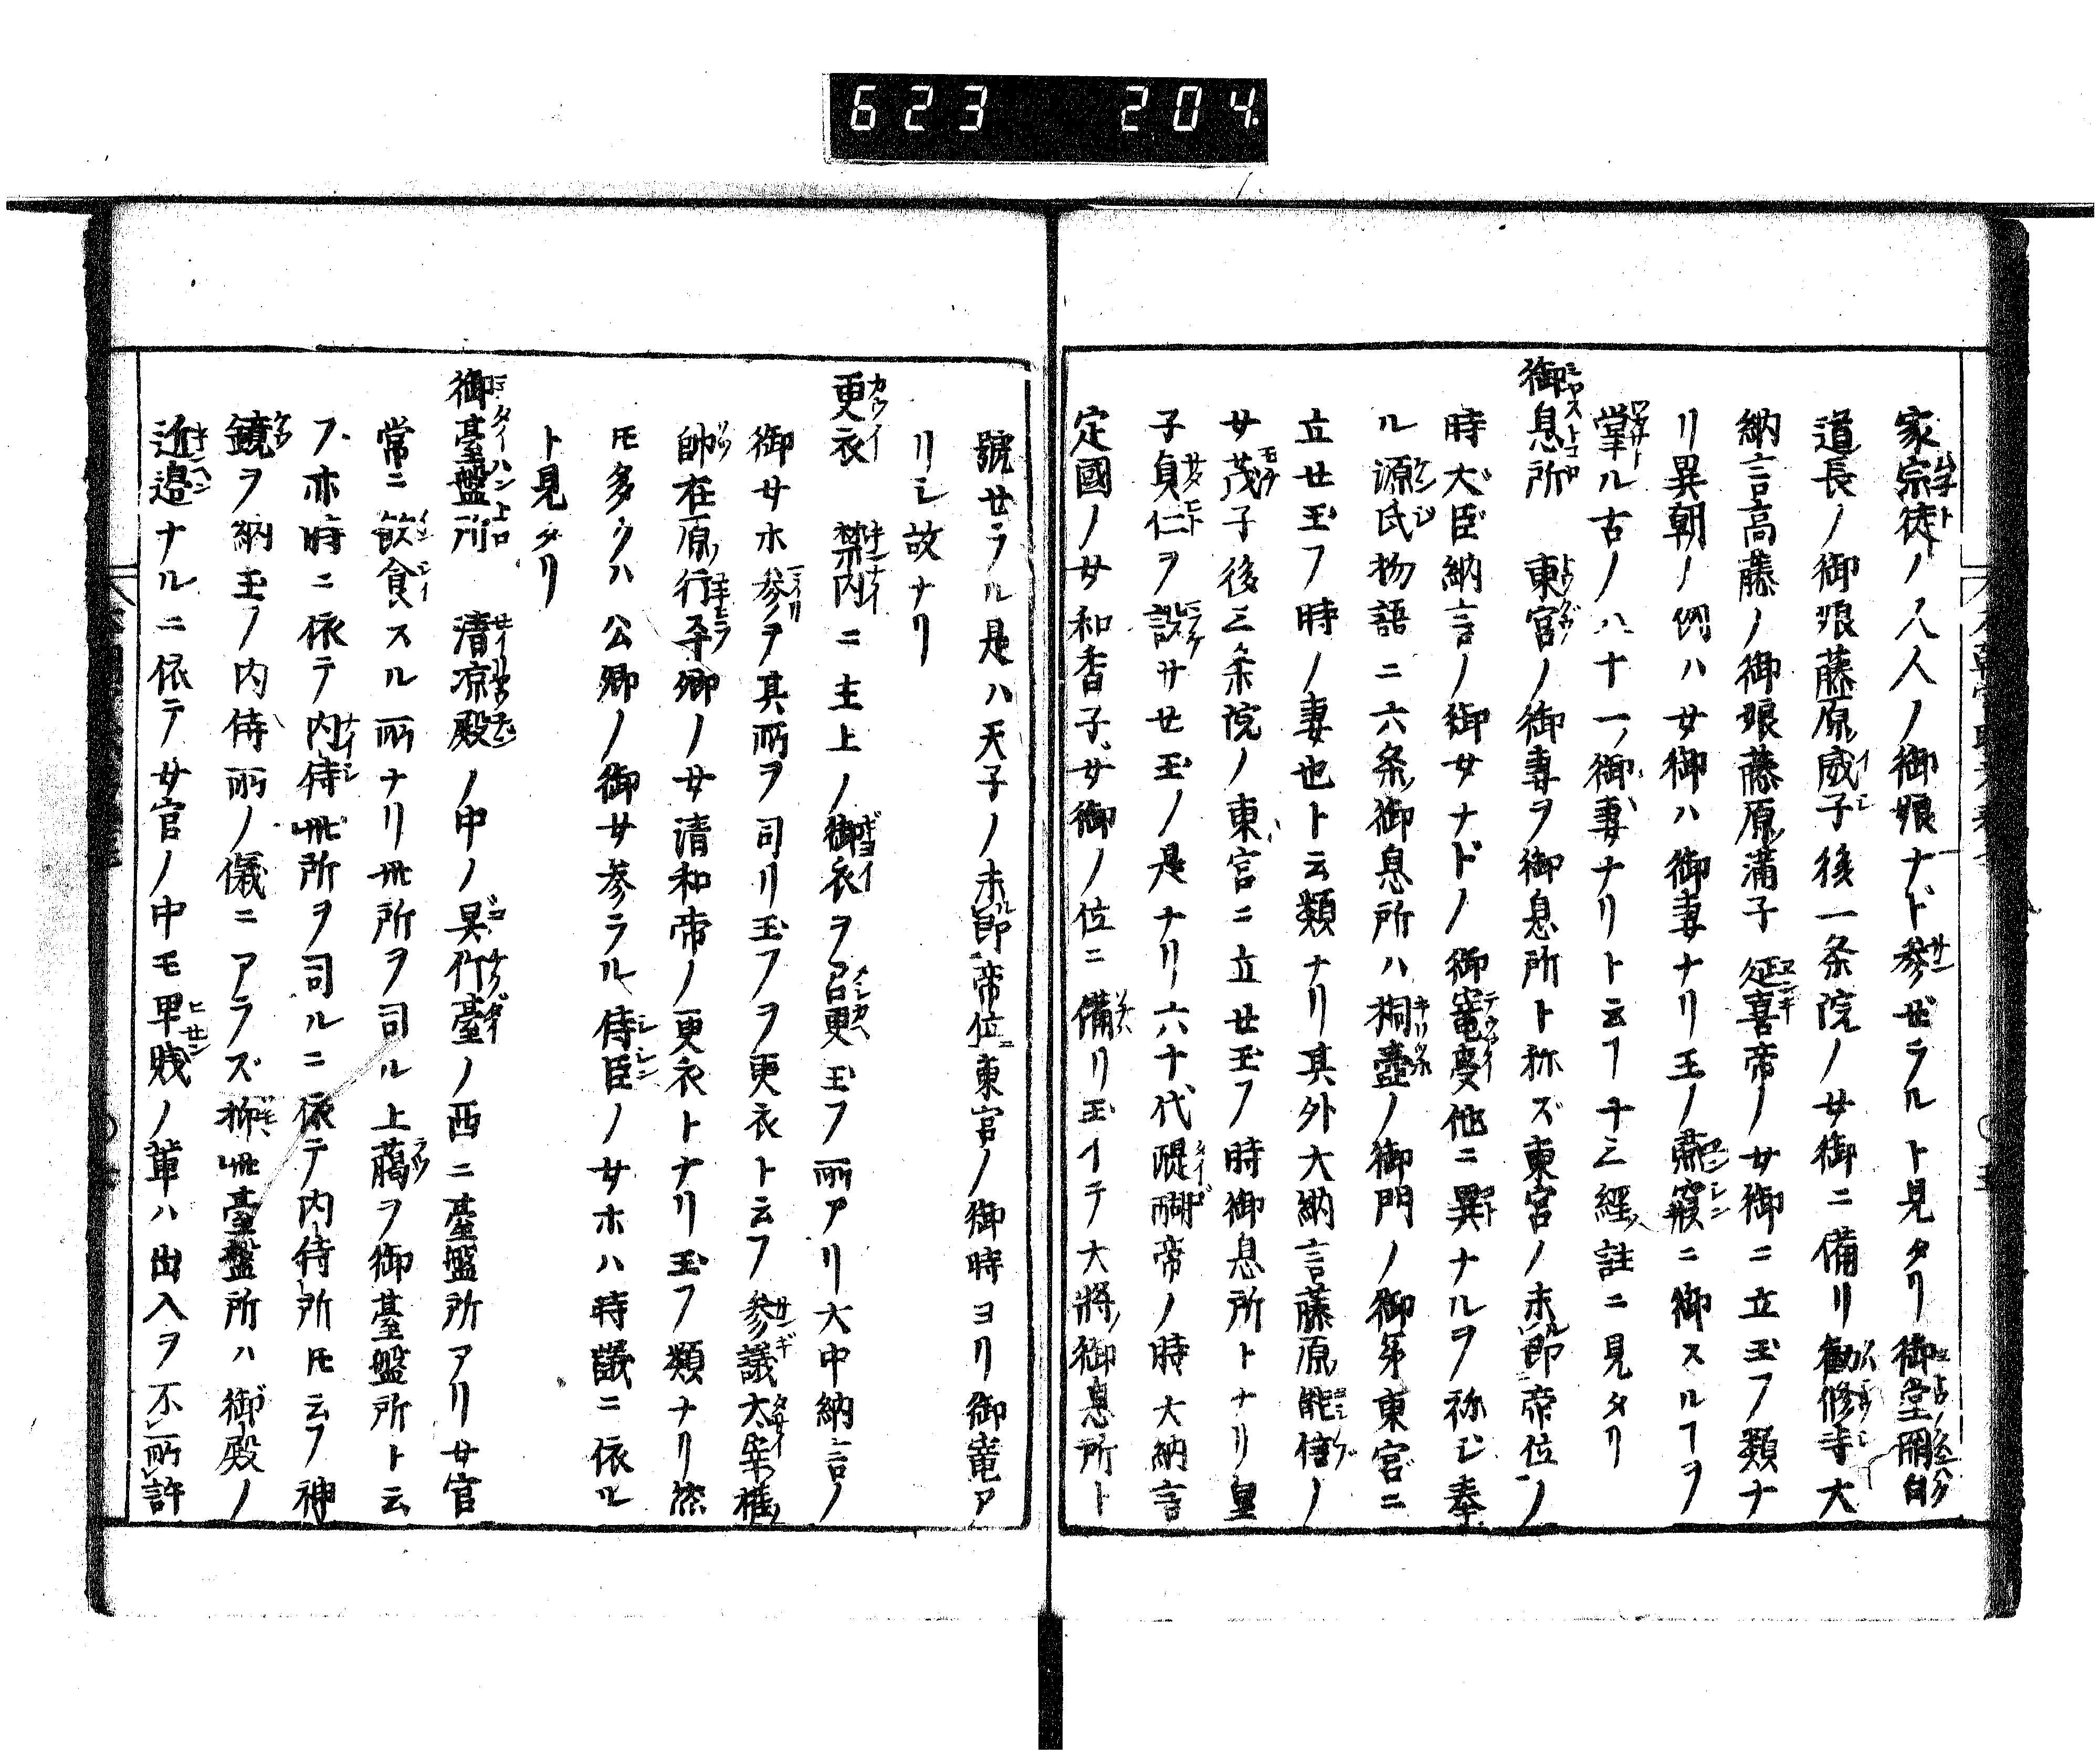 623 204.
家宗徒ノ人人ノ御娘ナド参ゼラルト見タリ御堂關白
道長ノ御娘藤原威子後一条院ノ女御ニ備リ勧修寺大
納言高藤ノ御娘藤原満子延喜帝ノ女御ニ立玉フ類ナ
リ異朝ノ例ハ女御ハ御妻ナリ王ノ燕寝ニ御スルヿヲ
掌ル古ノ八十一ノ御妻ナリト云ヿ十三經ノ註ニ見タリ
御息所 東宮ノ御妻ヲ御息所ト称ズ東宮ノ未即帝位ノ
時大臣納言ノ御女ナドノ御寵愛他ニ異ナルヲ称シ奉
ル源氏物語ニ六条御息所ハ桐壺ノ御門ノ御弟東宮ニ
立世玉フ時ノ妻也ト云類ナリ其外大納言藤原能信ノ
女茂子後三条院ノ東宮ニ立世玉フ時御息所トナリ皇
子貞仁ヲ設サセ玉ノ是ナリ六十代醍醐帝ノ時大納言
定國ノ女和香子女御ノ位ニ備リ玉イテ大将御息所ト
號せラル是ハ天子ノ未即帝位東宮ノ御時ヨリ御竜ア
リシ故ナリ
更衣 禁内ニ主上ノ御衣ヲ召更玉フ所アリ大中納言ノ
御女ホ参ヲ其所ヲ司リ玉フヲ更衣ト云フ参議大宰権
帥在原行平卿ノ女清和帝ノ更衣トナリ玉フ類ナリ然
モ多クハ公卿ノ御女参ラル侍臣ノ女ホハ時議ニ依ル
ト見タリ
御臺盤所 清凉殿ノ中ノ呉竹臺ノ西ニ臺盤所アリ女官
常ニ飲食スル所ナリ此所ヲ司ル上﨟ヲ御臺盤所ト云
フ亦時ニ依テ内侍此所ヲ司ルニ依テ内侍所モ云フ神
鏡ヲ納玉ノ内侍所ノ儀ニアラズ抑此臺盤所ハ御殿ノ
近邉ナルニ依テ女官ノ中モ卑賎ノ輩ハ出入ヲ不所許